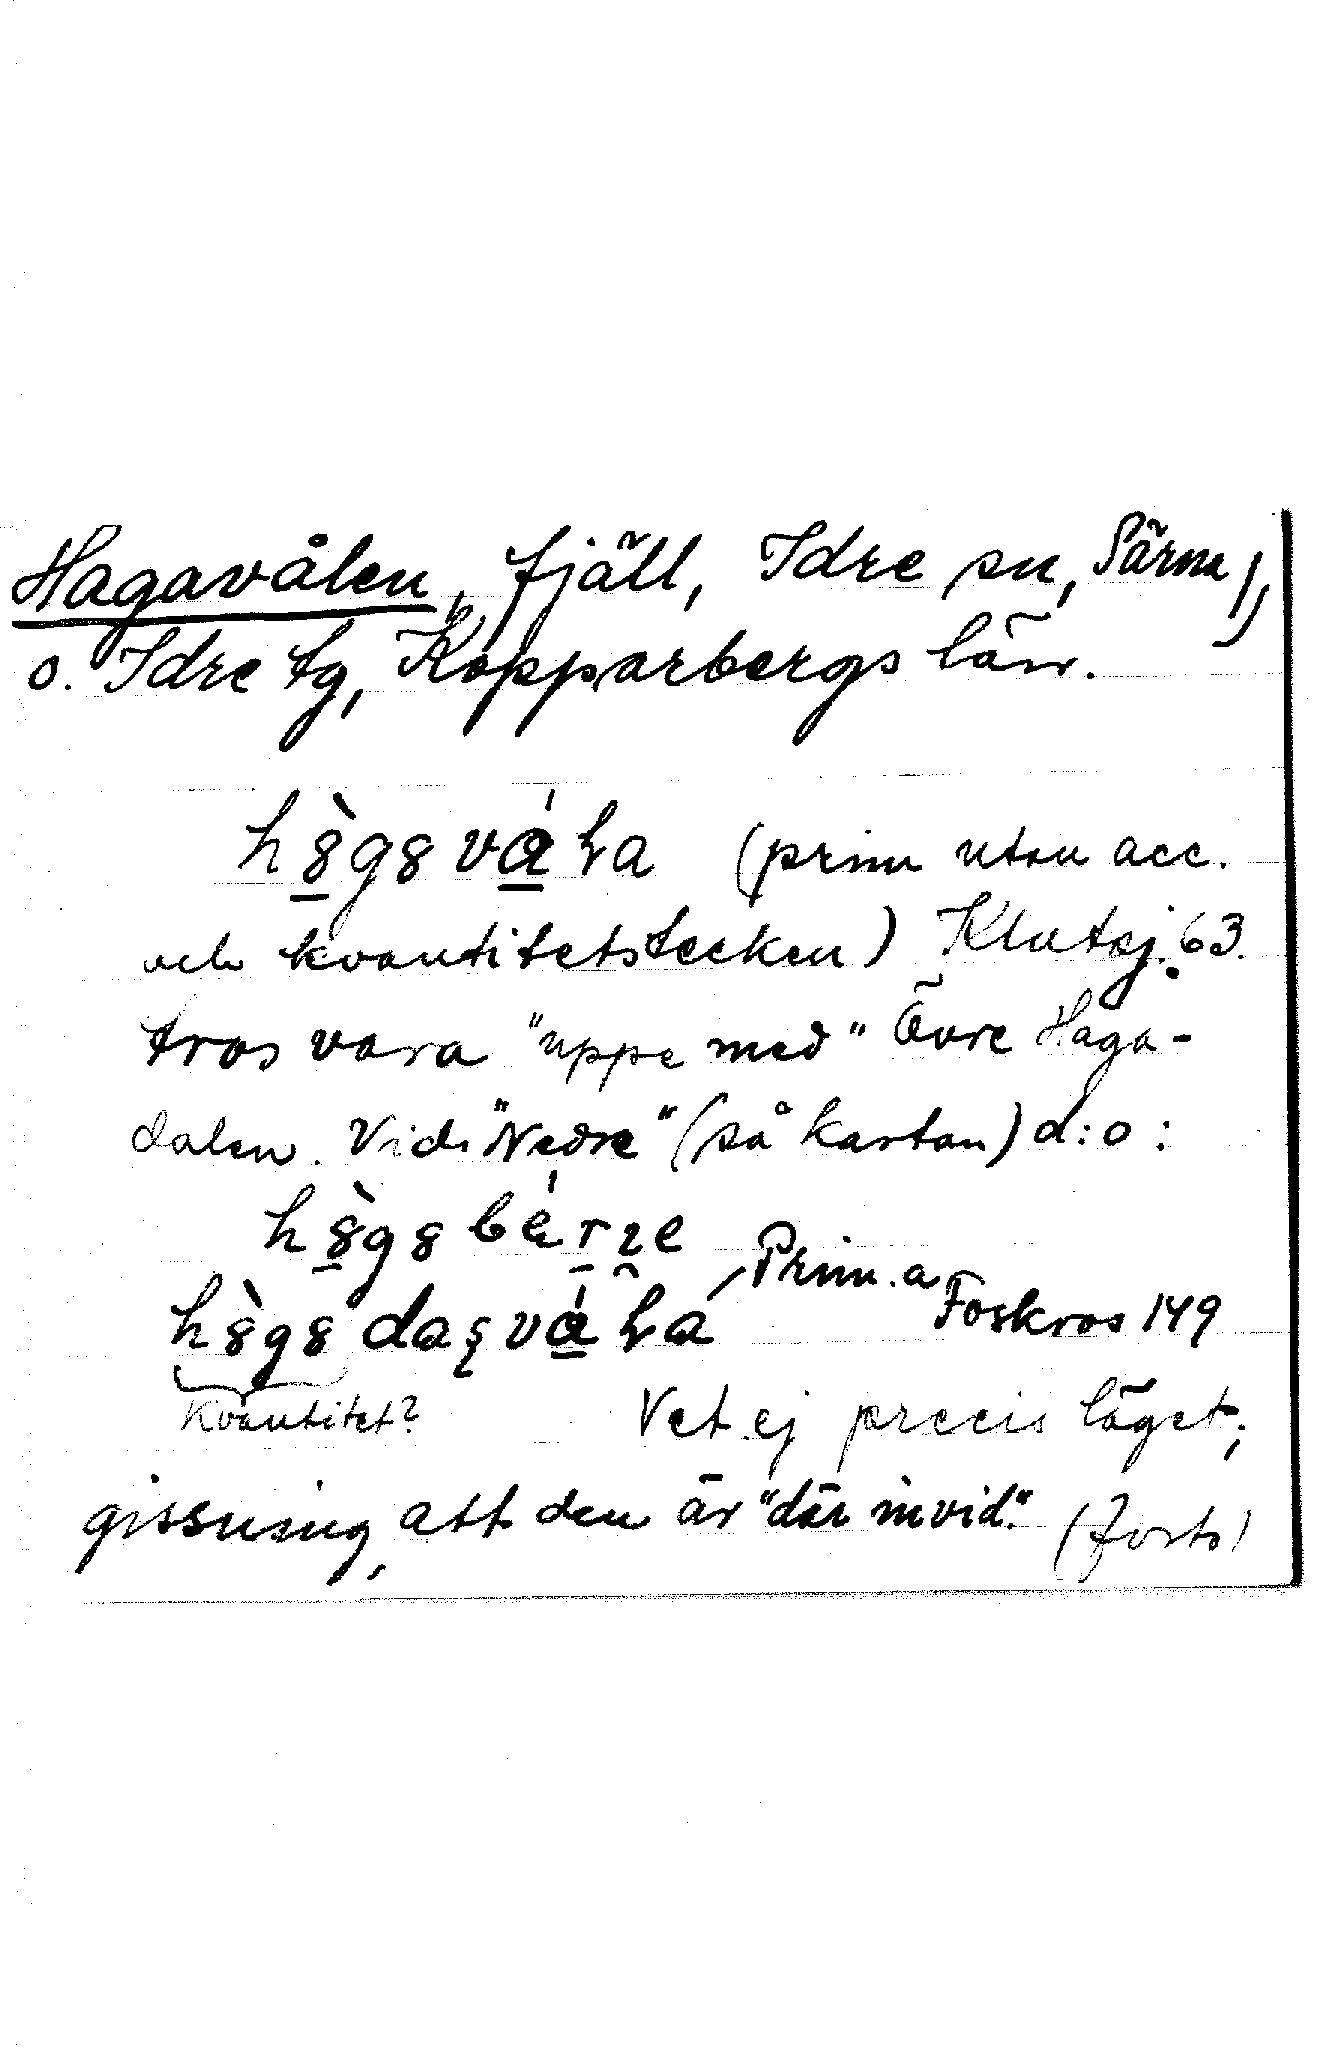 Hagavålen, fjäll, Idre sn, Särna
o. Idre tg, Kopparbergs län.
(prim utan acc.
och kvantitetstecken) Klutsj. 63.
tros vara "uppe med" Övre Haga-
dalen. Vid "Nedre" (så kartan) d:o:
Prim. a
Foskros 149
Kvantitet? Vet ej precis läget;
gissning, att den är "där invid." (forts)